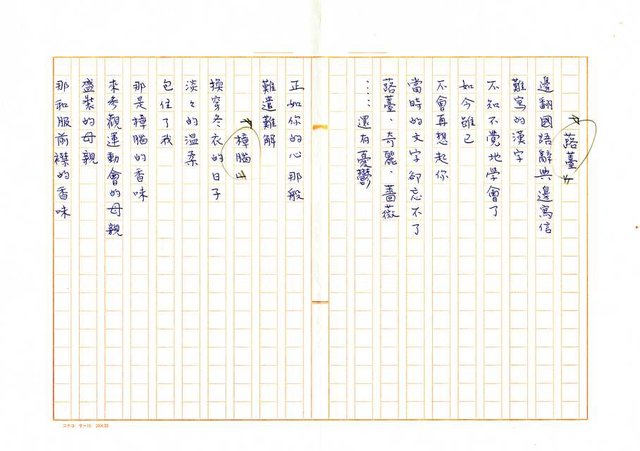 蕗薹
邊翻國語辭典邊寫信
難寫的漢字
不知不覚地學會了
如今雖已
不會再想起你
當時的文字卻忘不了
蕗薹、奇麗、薔薇
……還有憂鬱
正如你的心那般
難遣難解
樟腦
換穿冬衣的日子
淡々的溫柔
包住了我
那是樟腦的香味
來參觀運動會的母親
盛裝的母親
那和服前襟的香味